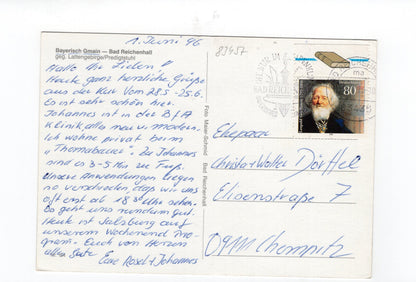 1. Juni 96
83457
Bayerisch Gmain — Bad Reichenhall
geg. Lattengebirge/Predigtstuhl
Hallo Ihr Lieben
Heute ganz herzliche Grüße
aus der Kur vom 28.5.-25.6.
Es ist sehr schön hier.
Johannes ist in der BfA
Klinik, alles neu u. modern.
Ich wohne privat beim
"Thomabauer". Zu Johannes
sind es 3-5 Min zu Fuß.
Unsere Anwendungen liegen
so verschieden, daß wir uns
oft erst ab 18 Uhr sehen.
Es geht uns rundum gut.
Heute ist Salzburg auf
unserem Wochenend Pro-
gramm. Euch von Herzen
alles Gute
Eure Rosel + Johannes
Foto Maier-Schmid Bad Reichenhall
80
Ehepaar
Christa + Walter Dörffel
Elisenstraße 7
09111 Chemnitz